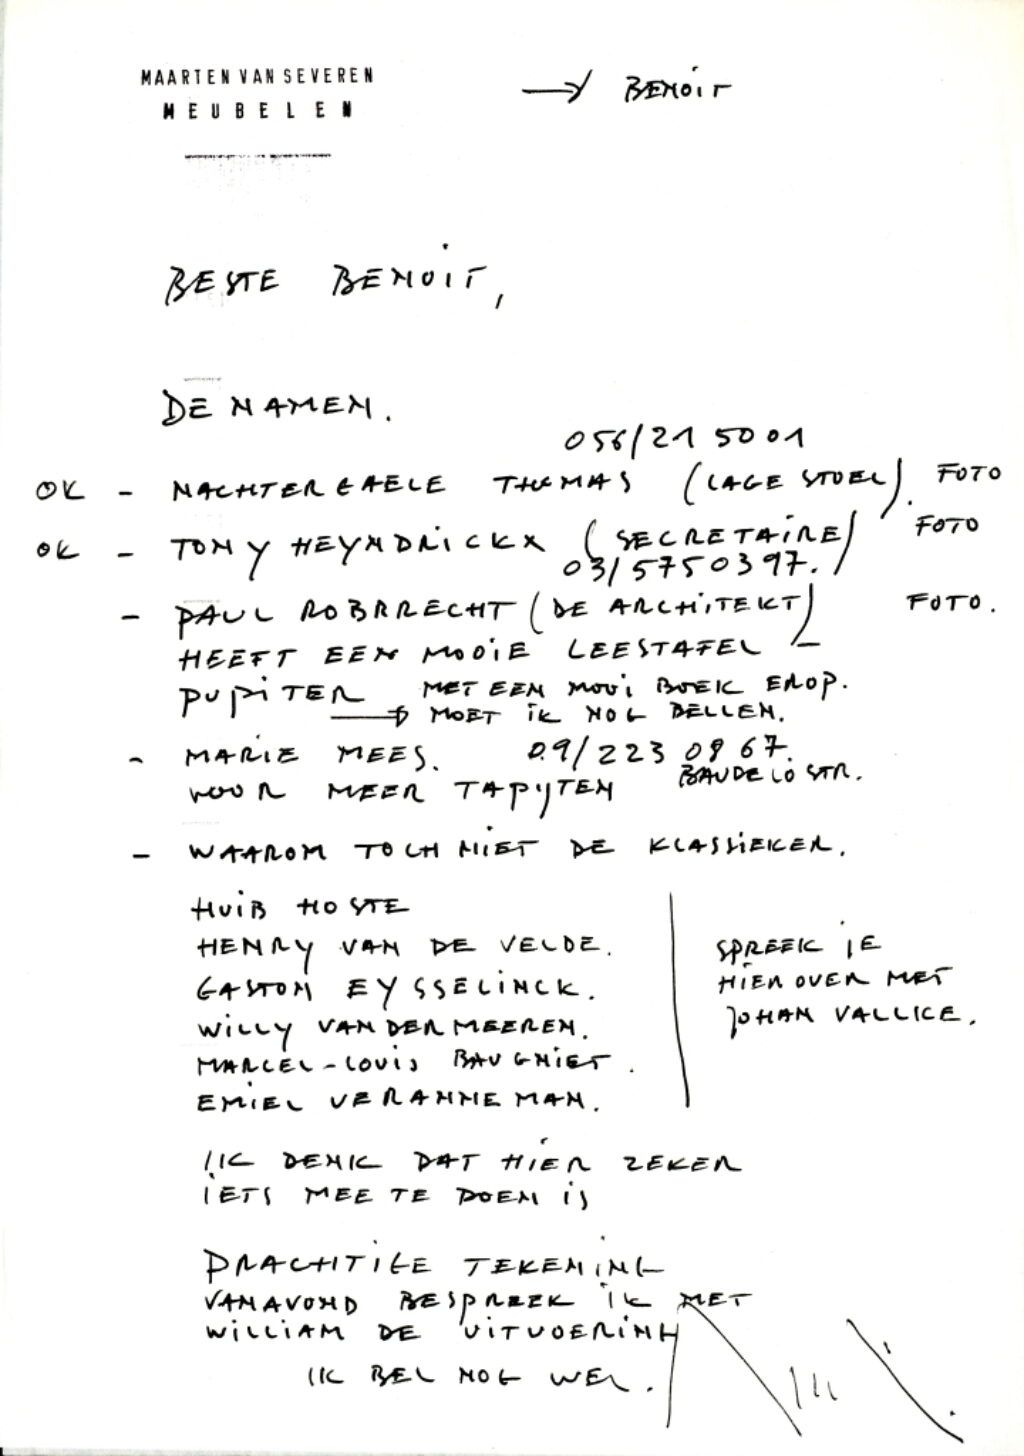 MAARTEN VAN SEVEREN
MEUBELEN
→ BENOIT
BESTE BENOIT,
DE NAMEN.
056/21 50 01
OK - NACHTERGAELE THOMAS (LAGE STOEL). FOTO
OK - TONY HEYNDRICKX (SECRETAIRE) FOTO
03/5750397.
- PAUL ROBRRECHT (DE ARCHITEKT) FOTO.
HEEFT EEN MOOIE LEESTAFEL –
PUPITER MET EEN MOOI BOEK EROP.
→ MOET IK NOG BELLEN.
- MARIE MEES. 09/223 09 67.
VOOR MEER TAPIJTEN BAUDELOSTR.
- WAAROM TOCH NIET DE KLASSIEKER.
HUIB HOSTE
HENRY VAN DE VELDE.
GASTON EYSSELINCK.
WILLY VANDERMEEREN.
MARCEL-LOUIS BAUGNIET.
EMIEL VERANNEMAN.
SPREEK JE
HIEROVER MET
JOHAN VALLICE.
IK DENK DAT HIER ZEKER
IETS MEE TE DOEN IS
PRACHTIGE TEKENING
VANAVOND BESPREEK IK MET
WILLIAM DE UITVOERING
IK BEL NOG WEL.